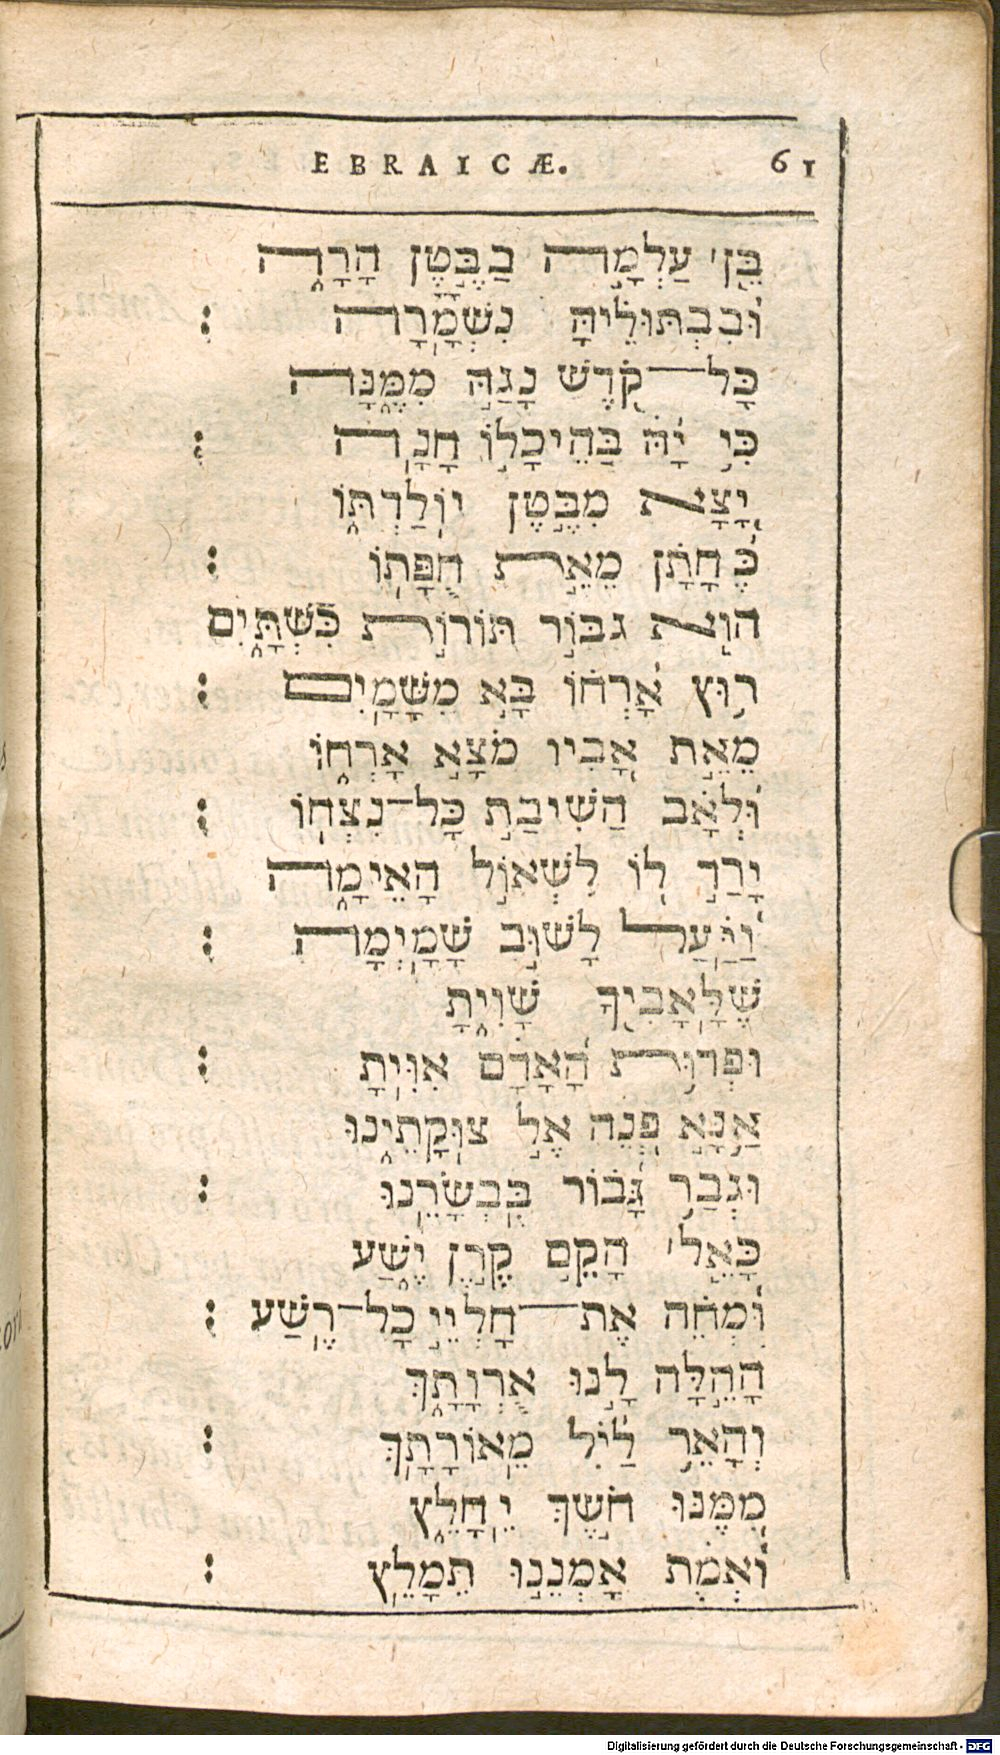 EBRAICÆ. 61
בֵּן עַלְמָה בַּבֶּטֶן הָרָה
וּבִבְתוּלֶיהָ נִשְׁמָרָה :
כָּל־קֹדֶשׁ נָגַהּ מִמֶּנָּה
כִּי יָהּ בַּהֵיכָלוֹ חָנָה :
יָצָא מִבֶּטֶן יוֹלַדְתּוֹ
כְּחָתָן מֵאֵת חֻפָּתוֹ :
הוּא גִבּוֹר תּוֹרוֹת כִּשְׁתָּיִם
רוּץ אָרְחוֹ בָּא מִשָּׁמָיִם :
מֵאֵת אָבִיו מֹצָא אָרְחוֹ
וְלְאָב הַשִׁיבַת כָּל־נִצְחוֹ :
יָרַד לוֹ לִשְׁאוֹל הָאֵימָה
וַיַּעַל לָשׁוּב שָׁמָיְמָה :
שֶׁלָּאָבִיךָ שָׁוִיתָ
וּפְרוּת הָאָדָם אִוִּיתָ :
אָנָּא פְנֵה אֶל צוּקָתֵינוּ
וּגְבַר גִּבּוֹר בִּבְשָׂרֵנוּ :
כָּאֵל הָקֵם קֶרֶן יֶשַׁע
וּמְחֵה אֶת־חָלְיֵי כָל־רֶשַׁע :
הָהֵלָּה לָנוּ אֻרְוָתָךְ
וְהָאֵר לַיִל מְאוֹרָתָךְ :
מִמֶּנּוּ חֹשֶׁךְ יֵחָלֵץ
וְאֱמֶת אָמְנֵנוּ תִּמָּלֵץ :
Digitalisierung gefördert durch die Deutsche Forschungsgemeinschaft - DFG